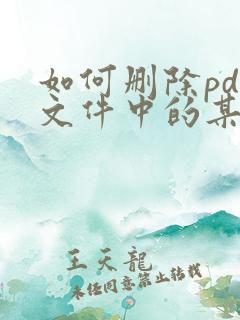 如何删除pd
文件中的某
王天龍
未经同意禁止转载